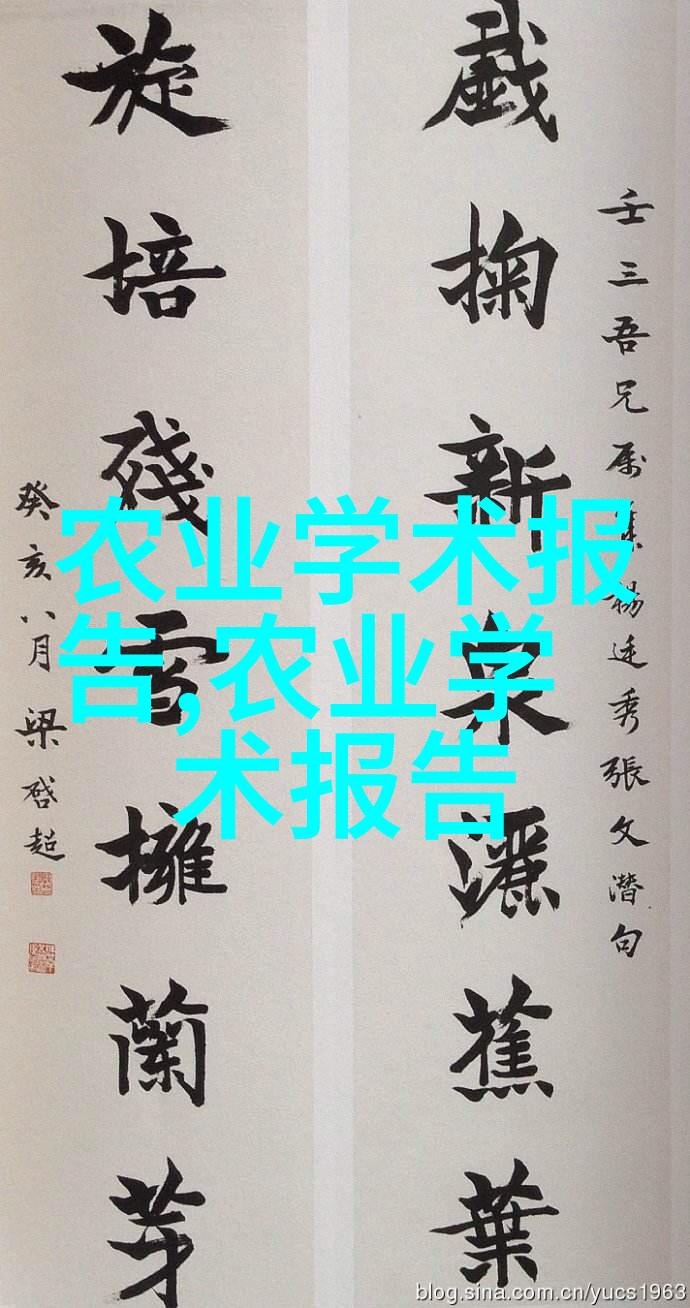 戲掬新泉灑蕉葉
壬三吾兄属集楊廷秀張文潛句
旋培殘雪擁蘭芽
癸亥八月梁啓超
农业学术报
告,农业学
术报告
blog.sina.com.cn/yucs1963